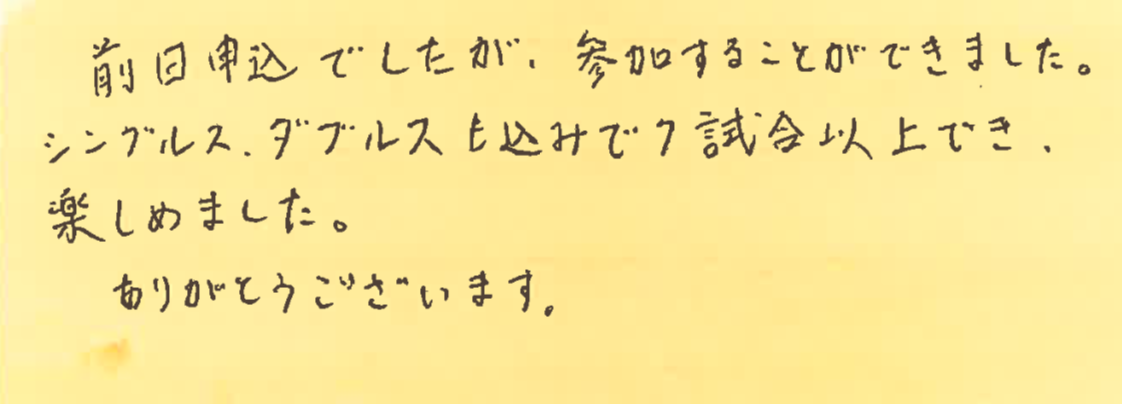 前日申込でしたが、参加することができました。
シングルス、ダブルスも込みで7試合以上でき、
楽しめました。
ありがとうございます。